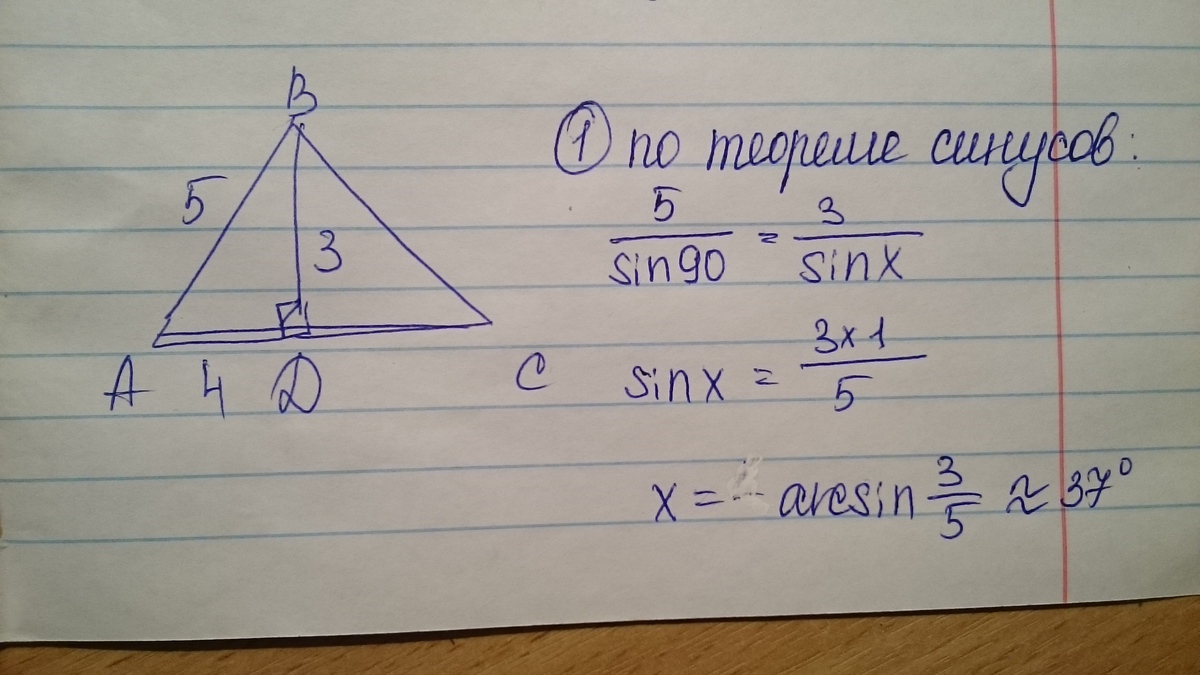 B
5
3
A 4 D C
① по теореме синусов:
5/sin90 = 3/sinx
sinx = 3x1/5
x = arcsin 3/5 ≈ 37°